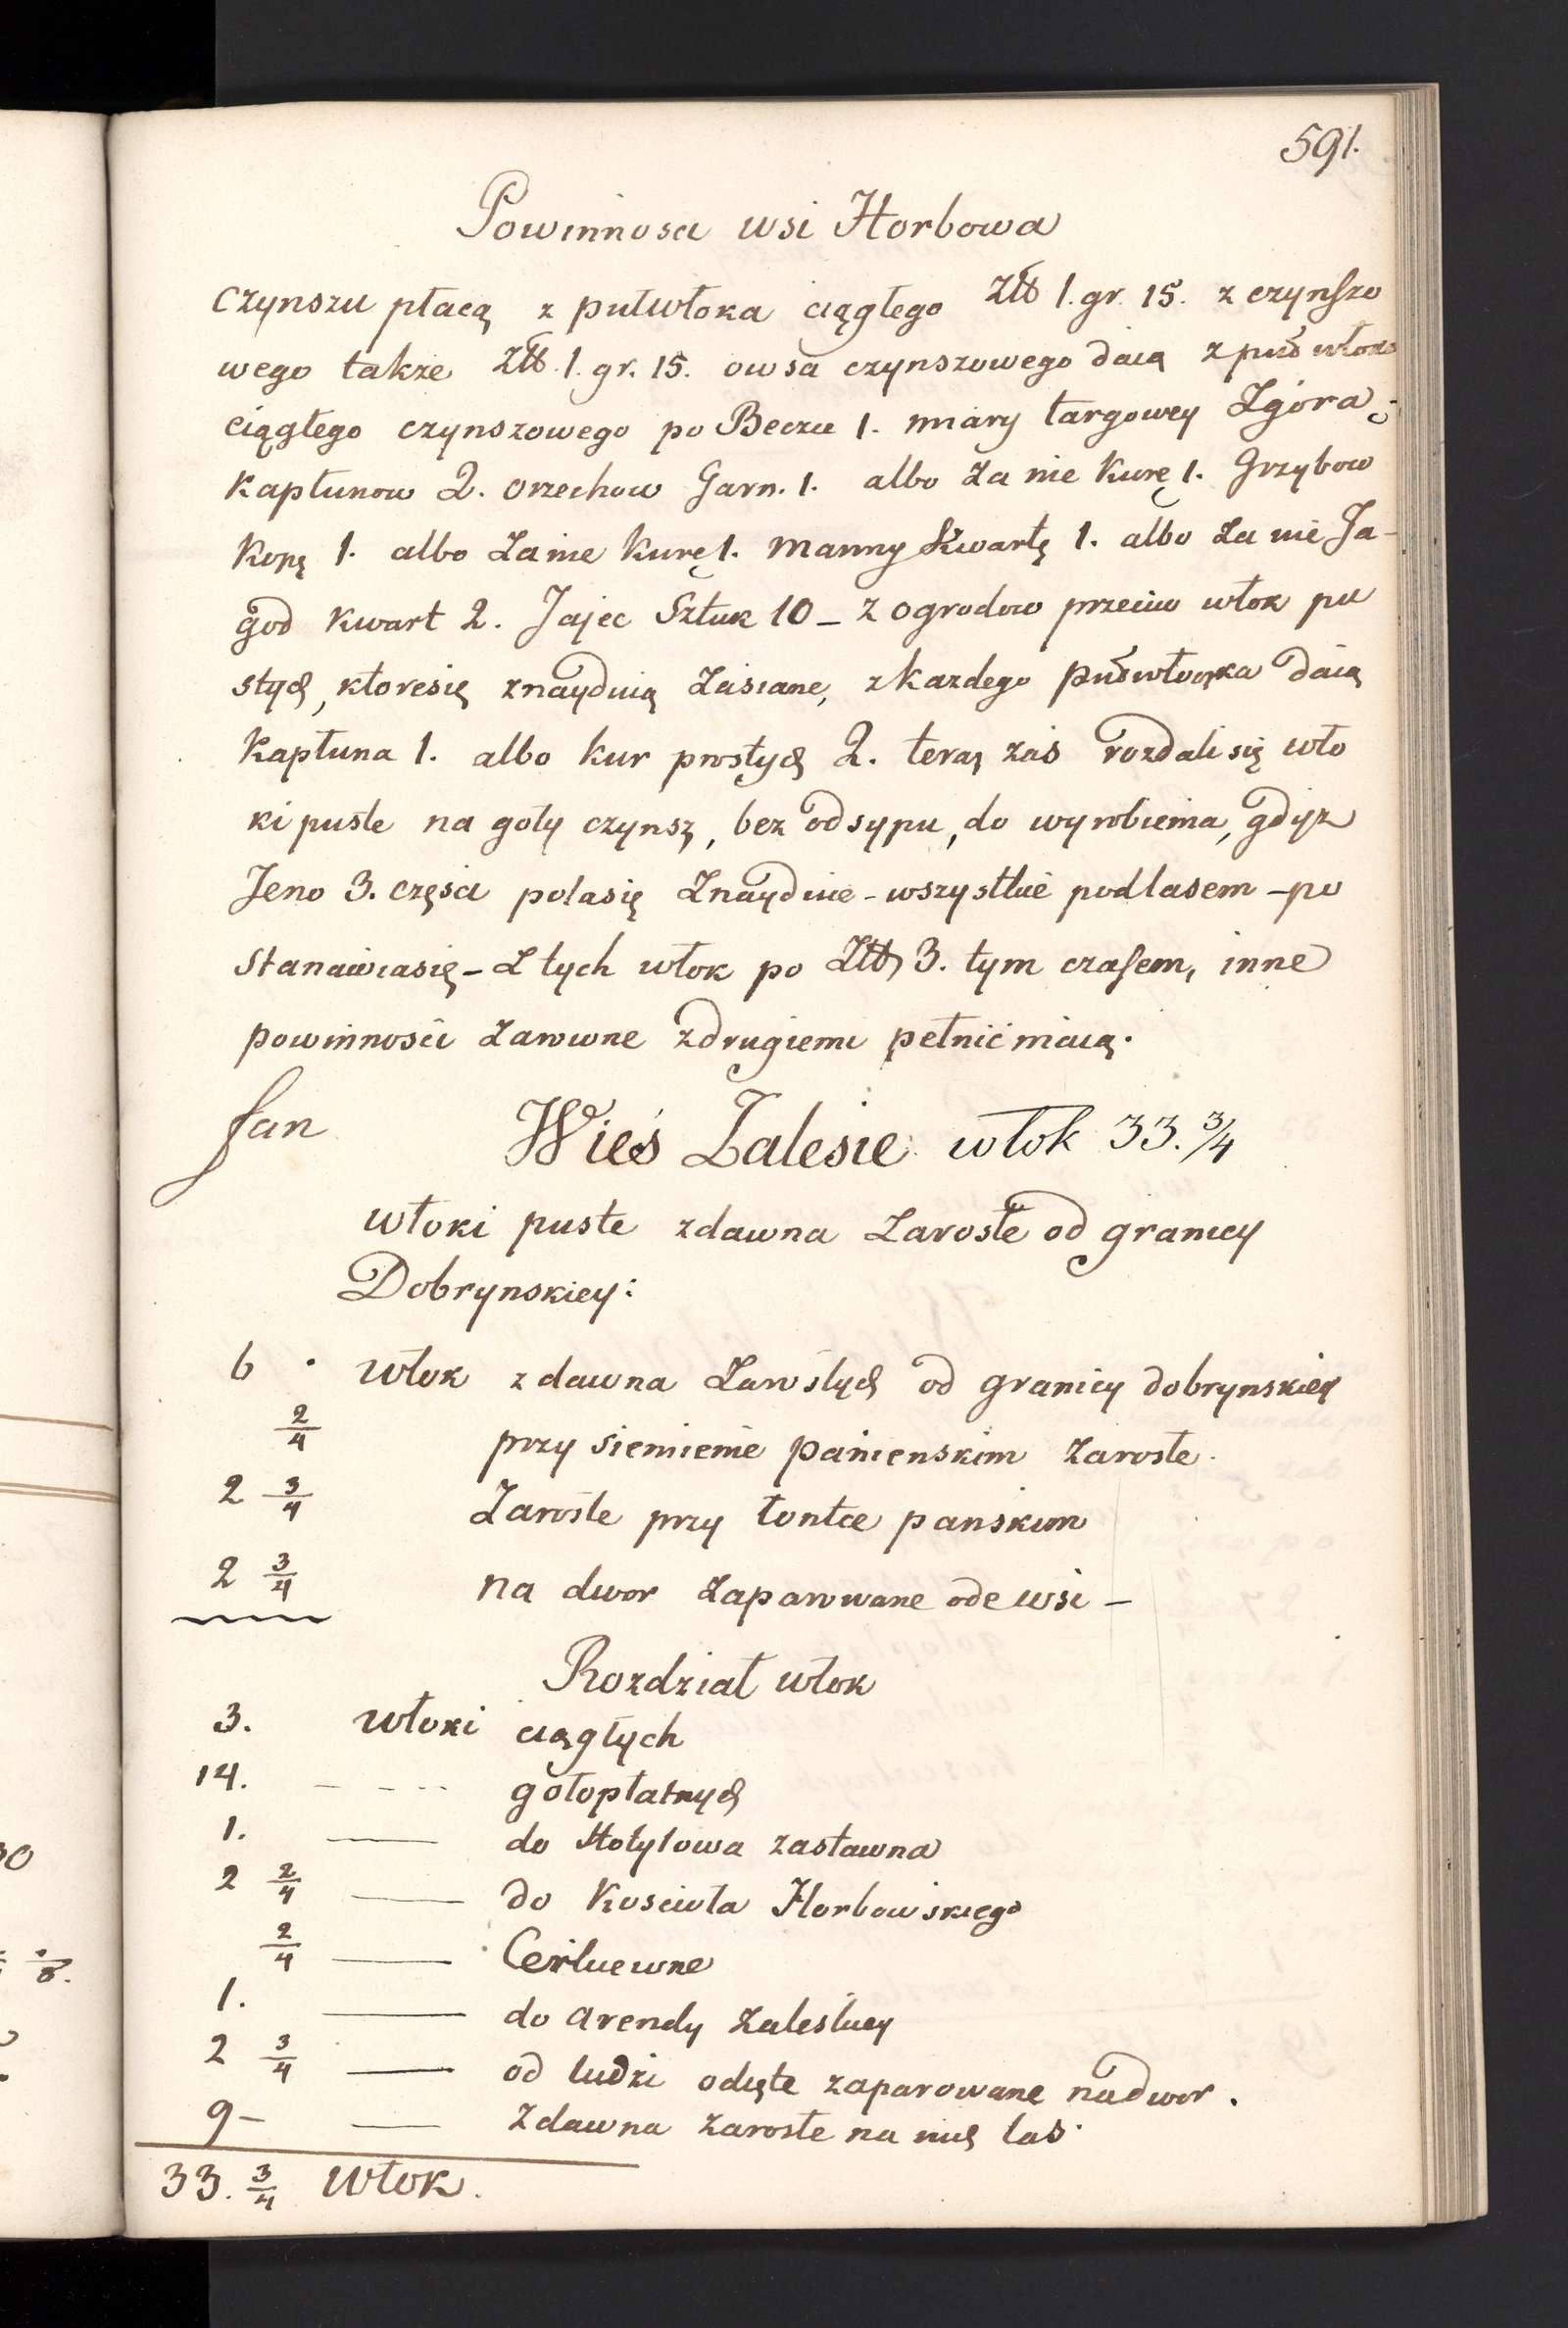 591.
Powinnosci wsi Horbowa
czynszu płacą z pułwłoka ciągłego Złł 1. gr. 15. z czynszo
wego takze Złł. 1. gr. 15. owsa czynszowego daią z puł włoka
ciągłego czynszowego po Beczce 1. miary targowey Zgórą
Kapłunow 2. orzechow Garn. 1. albo za nie Kurę 1. Grzybow
Kopę 1. albo zanie Kurę 1. Manny Kwartę 1. albo za nie Ja-
god Kwart 2. Jajec Sztuk 10 _ z ogrodow przeciw włok pu
stych, ktoresię znayduią zasiane, z kazdego pułwłoka daią
Kapłuna 1. albo kur prostych 2. teraz zaś rozdali się wło
ki puste na goły czynsz, bez odsypu, do wyrobienia, gdyz
Jeno 3. częsci polasię Znayduie - wszystkie podlasem - po
stanawiasię - z tych włok po Złł 3. tym czasem, inne
powinności zarowne zdrugiemi pełnić maią.
fan Wieś Zalesie włok 33. 3/4
włoki puste zdawna zarosłe od granicy
Dobrynskiey:
6 . włok z dawna zarosłych od granicy dobrynskiey
2/4 przy siemienie panienskim zarosłe.
2 3/4 Zarosłe przy łontce panskim
2 3/4 na dwor zaparowane ode wsi -
Rozdział włok
3. włoki ciągłych
14. - - - gołopłatnych
1. — do Hotyłowa zastawna
2 2/4 — do Kościoła Horbowskiego
2/4 — Cerkiewne
1. — do arendy zaleskiey
2 3/4 — od ludzi odięte zaparowane nadwor.
9 - — zdawna zarosłe na nich las.
33. 3/4 włok.